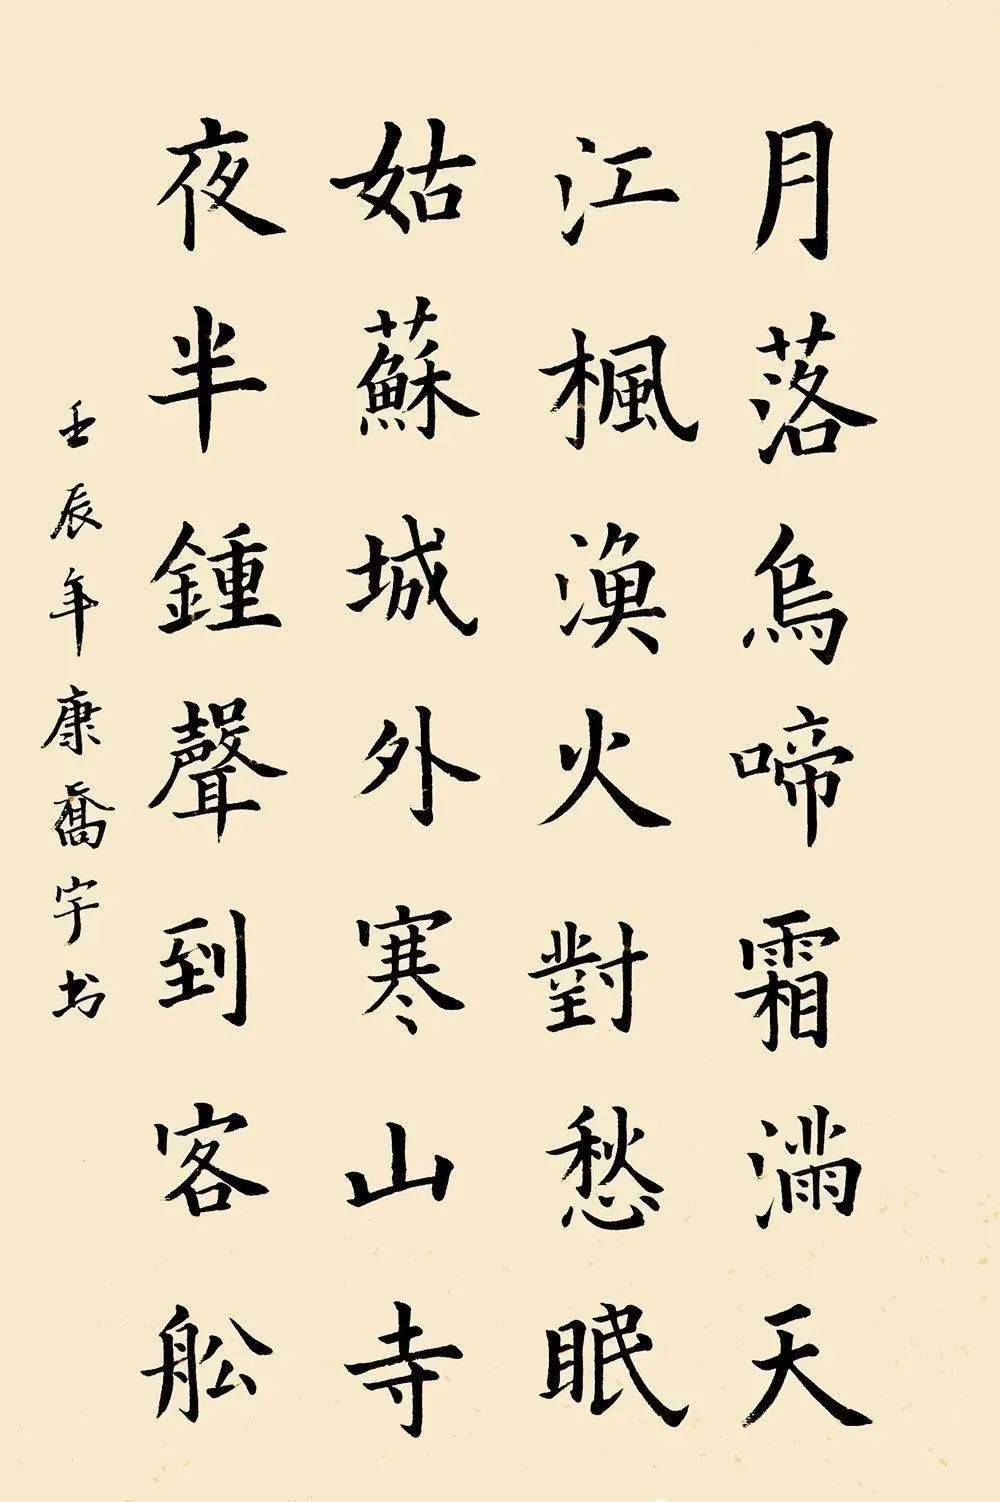 月落烏啼霜滿天
江楓漁火對愁眠
姑蘇城外寒山寺
夜半鍾聲到客舩
壬辰年康喬宇书